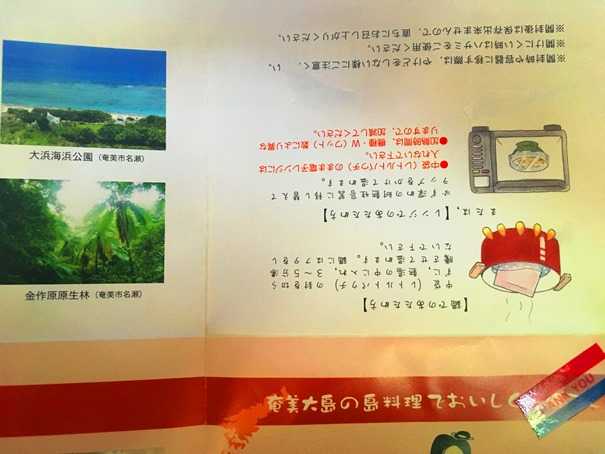 大浜海浜公園（奄美市名瀬）
金作原原生林（奄美市名瀬）
奄美大島の島料理でおいし
【鍋でのあたため方】
中袋（レトルトパウチ）の封を切ら
ずに、熱湯の中に入れ、3～5分沸
騰させて温めます。鍋にはフタをし
ないで下さい。
または、【レンジでのあたため方】
必ず深めの耐熱性容器に移し替えて
ラップをかけて温めます。
●中袋（レトルトパウチ）のまま電子レンジには
入れないで下さい。
●加熱時間は、機種・W（ワット）数により異な
りますので、加減してください。
※開封時や容器に移す際は、やけどをしない様にご注意く い。
※開けにくい時はハサミをご使用ください。
※開封後は保存出来ませんので、直ちにお召し上がりください。
YOU